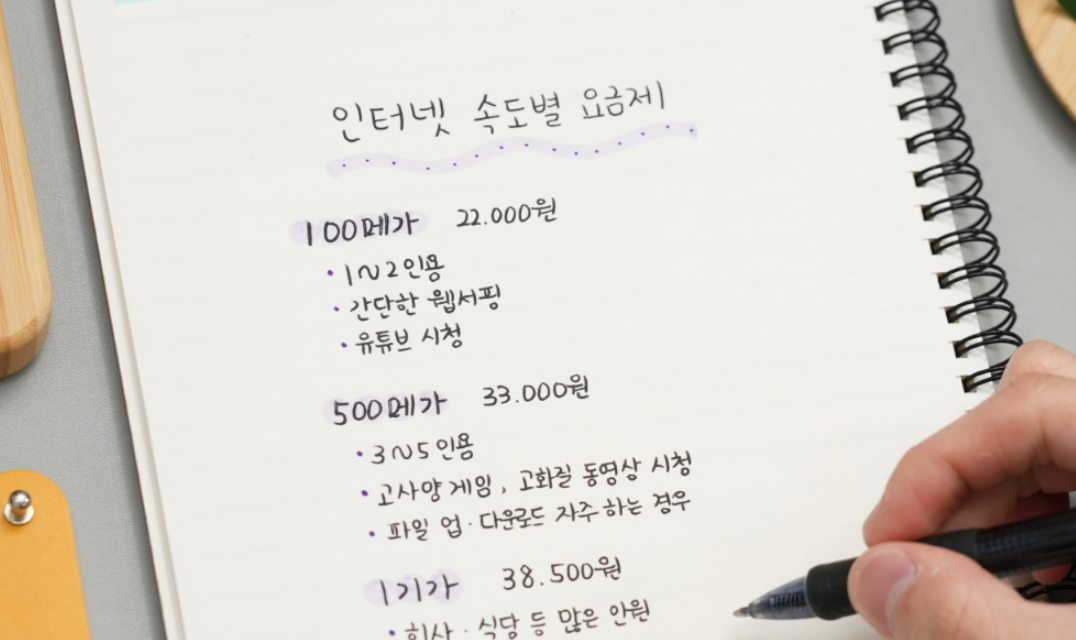 인터넷 속도별 요금제
100메가 22.000원
• 1~2인용
• 간단한 웹서핑
• 유튜브 시청
500메가 33.000원
• 3~5인용
• 고사양 게임, 고화질 동영상 시청
• 파일 업·다운로드 자주 하는 경우
1기가 38.500원
• 회사·식당 등 많은 인원